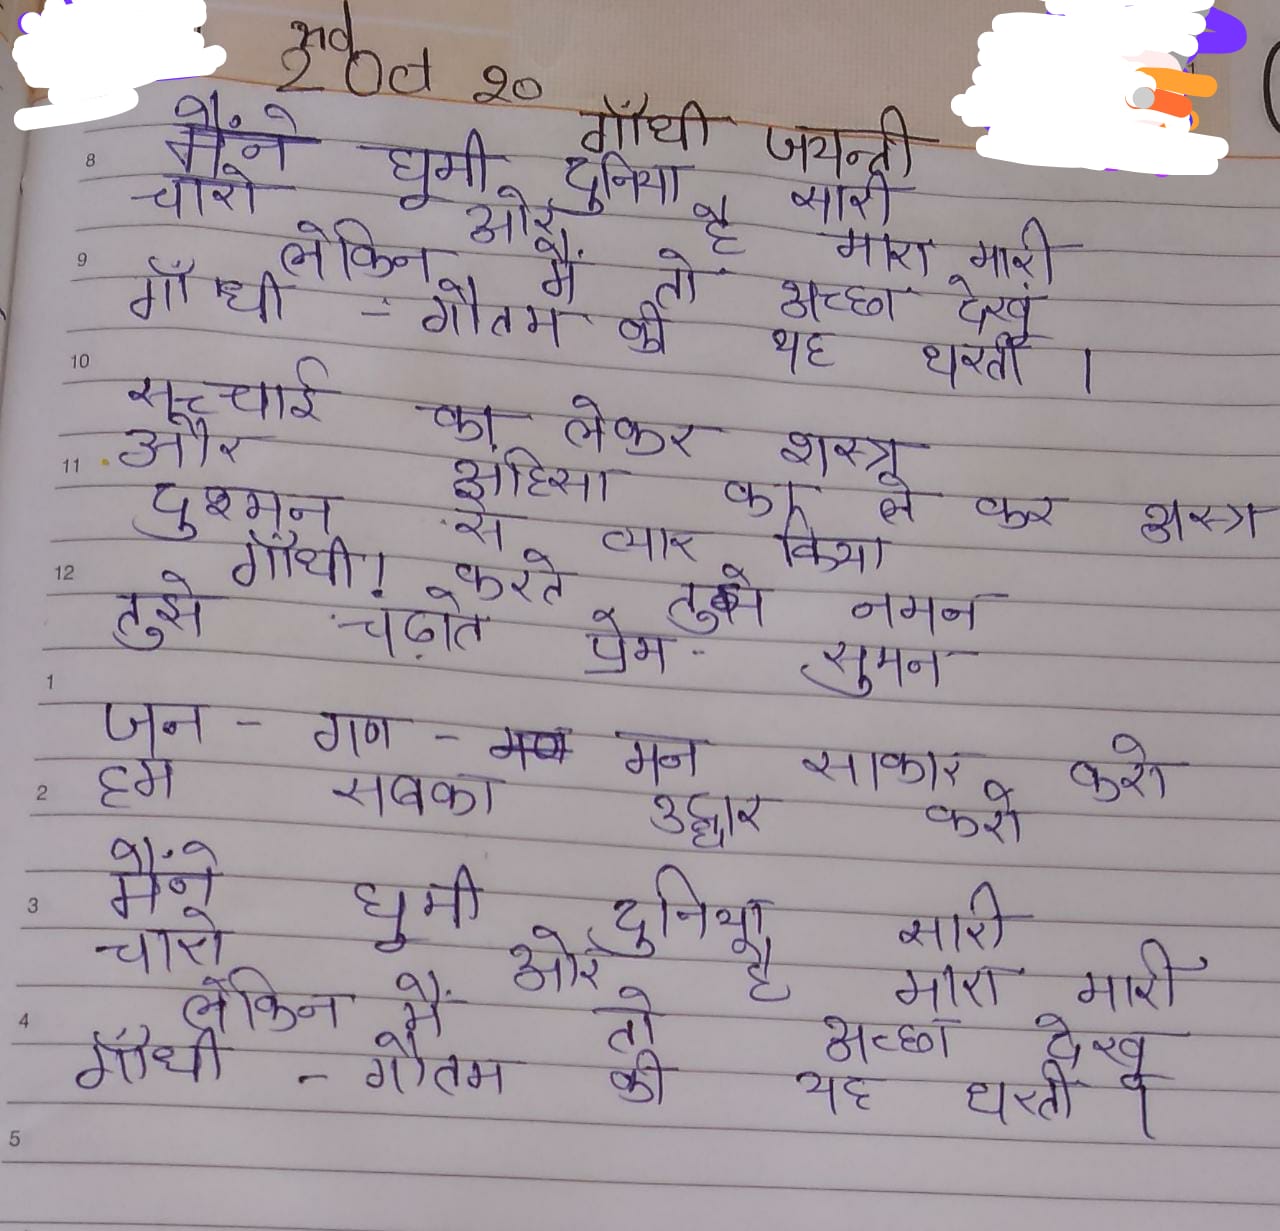 2 Oct 20
गाँधी जयन्ती
8
मैंने घूमी दुनिया सारी
चारो ओर है मारा मारी
9
लेकिन मैं तो अच्छा देखूं
गाँधी - गौतम की यह धरती ।
10
सच्चाई का लेकर शस्त्र
11
और अहिंसा का ले कर अस्त्र
दुश्मन से प्यार किया
12
गाँधी! करते तुझे नमन
तुझे चढ़ाते प्रेम - सुमन
1
जन - गण - मन साकार करो
2
हम सबका उद्धार करो
3
मैंने घुमी दुनिया सारी
चारो ओर है मारा मारी
4
लेकिन मैं तो अच्छा देखू
गाँधी - गौतम की यह धरती ।
5